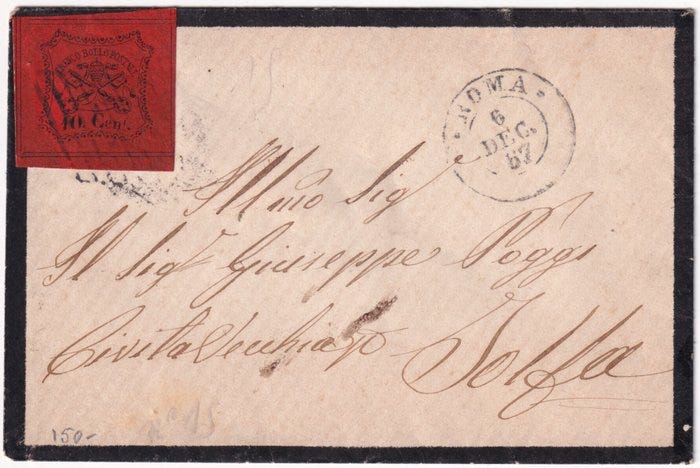 FRANCO BOLLO POSTALE
10. Cent.
ROMA
6
DEC.
67
Ill mo Sig
Il Sig Giuseppe Poggi
Civita Vecchia p
Tolfa
150-
n° 15